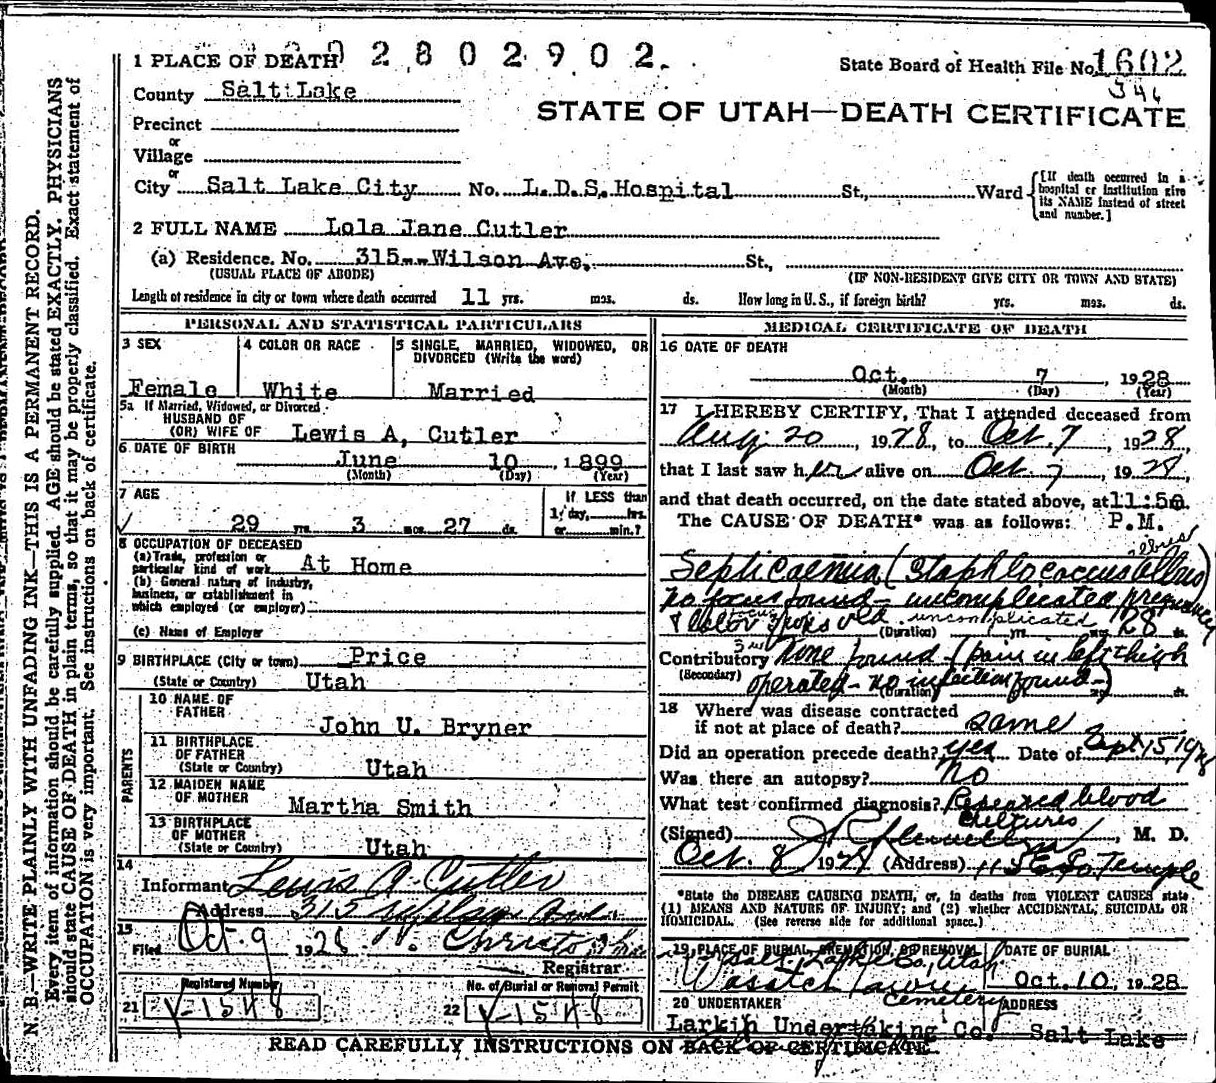 N. B.—WRITE PLAINLY WITH UNFADING INK—THIS IS A PERMANENT RECORD.
Every item of information should be carefully supplied. AGE should be stated EXACTLY. PHYSICIANS
should state CAUSE OF DEATH in plain terms, so that it may be properly classified. Exact statement of
OCCUPATION is very important. See instructions on back of certificate.
2802902
1 PLACE OF DEATH
State Board of Health File No. 1602
346
County Salt Lake
STATE OF UTAH—DEATH CERTIFICATE
Precinct
or
Village
or
City Salt Lake City No. L.D.S. Hospital St., Ward
[If death occurred in a
hospital or institution give
its NAME instead of street
and number.]
2 FULL NAME Lola Jane Cutler
(a) Residence. No. 315--Wilson Ave. St.,
(USUAL PLACE OF ABODE) (IF NON-RESIDENT GIVE CITY OR TOWN AND STATE)
Length of residence in city or town where death occurred 11 yrs. mos. ds. How long in U. S., if foreign birth? yrs. mos. ds.
PERSONAL AND STATISTICAL PARTICULARS
3 SEX
Female
4 COLOR OR RACE
White
5 SINGLE, MARRIED, WIDOWED, OR
DIVORCED (Write the word)
Married
5a If Married, Widowed, or Divorced
HUSBAND OF
(OR) WIFE OF Lewis A. Cutler
6 DATE OF BIRTH
June 10, 1899
(Month) (Day) (Year)
7 AGE
29 yrs. 3 mos. 27 ds.
If LESS than
1 day, hrs.
or min.?
8 OCCUPATION OF DECEASED
(a) Trade, profession or
particular kind of work At Home
(b) General nature of industry,
business, or establishment in
which employed (or employer)
(c) Name of Employer
9 BIRTHPLACE (City or town) Price
(State or Country) Utah
PARENTS
10 NAME OF
FATHER
John U. Bryner
11 BIRTHPLACE
OF FATHER
(State or Country) Utah
12 MAIDEN NAME
OF MOTHER Martha Smith
13 BIRTHPLACE
OF MOTHER
(State or Country) Utah
14
Informant Lewis A. Cutler
Address 315 Wilson Ave.
15
Filed Oct. 9 1928
Registrar
Registered Number
21 V-1548
No. of Burial or Removal Permit
22 V-1548
MEDICAL CERTIFICATE OF DEATH
16 DATE OF DEATH
Oct. 7, 1928
(Month) (Day) (Year)
17 I HEREBY CERTIFY, That I attended deceased from
Aug. 20, 1928, to Oct. 7 1928,
that I last saw her alive on Oct. 7, 1928,
and that death occurred, on the date stated above, at 11:50
The CAUSE OF DEATH* was as follows: P.M.
albus
Septicaemia (Staphlococcus albus)
no focus found - uncomplicated pregnancy
& labor uncomplicated
(Duration) yrs. mos. 28 ds.
Contributory None found (pain in left thigh
(Secondary) operated - no infection found -)
(Duration) mo. ds.
18 Where was disease contracted
if not at place of death? same
Did an operation precede death? yes Date of Sept. 15, 1928
Was there an autopsy? No
What test confirmed diagnosis? Repeated blood
cultures
(Signed) , M. D.
Oct. 8, 1928 (Address) 115 E. So. Temple
*State the DISEASE CAUSING DEATH, or, in deaths from VIOLENT CAUSES, state
(1) MEANS AND NATURE OF INJURY; and (2) whether ACCIDENTAL, SUICIDAL OR
HOMICIDAL. (See reverse side for additional space.)
19 PLACE OF BURIAL, CREMATION, OR REMOVAL
Salt Lake Co., Utah
Wasatch Lawn
Cemetery
DATE OF BURIAL
Oct. 10, 1928
20 UNDERTAKER
Larkin Undertaking Co.
ADDRESS
Salt Lake
READ CAREFULLY INSTRUCTIONS ON BACK OF CERTIFICATE